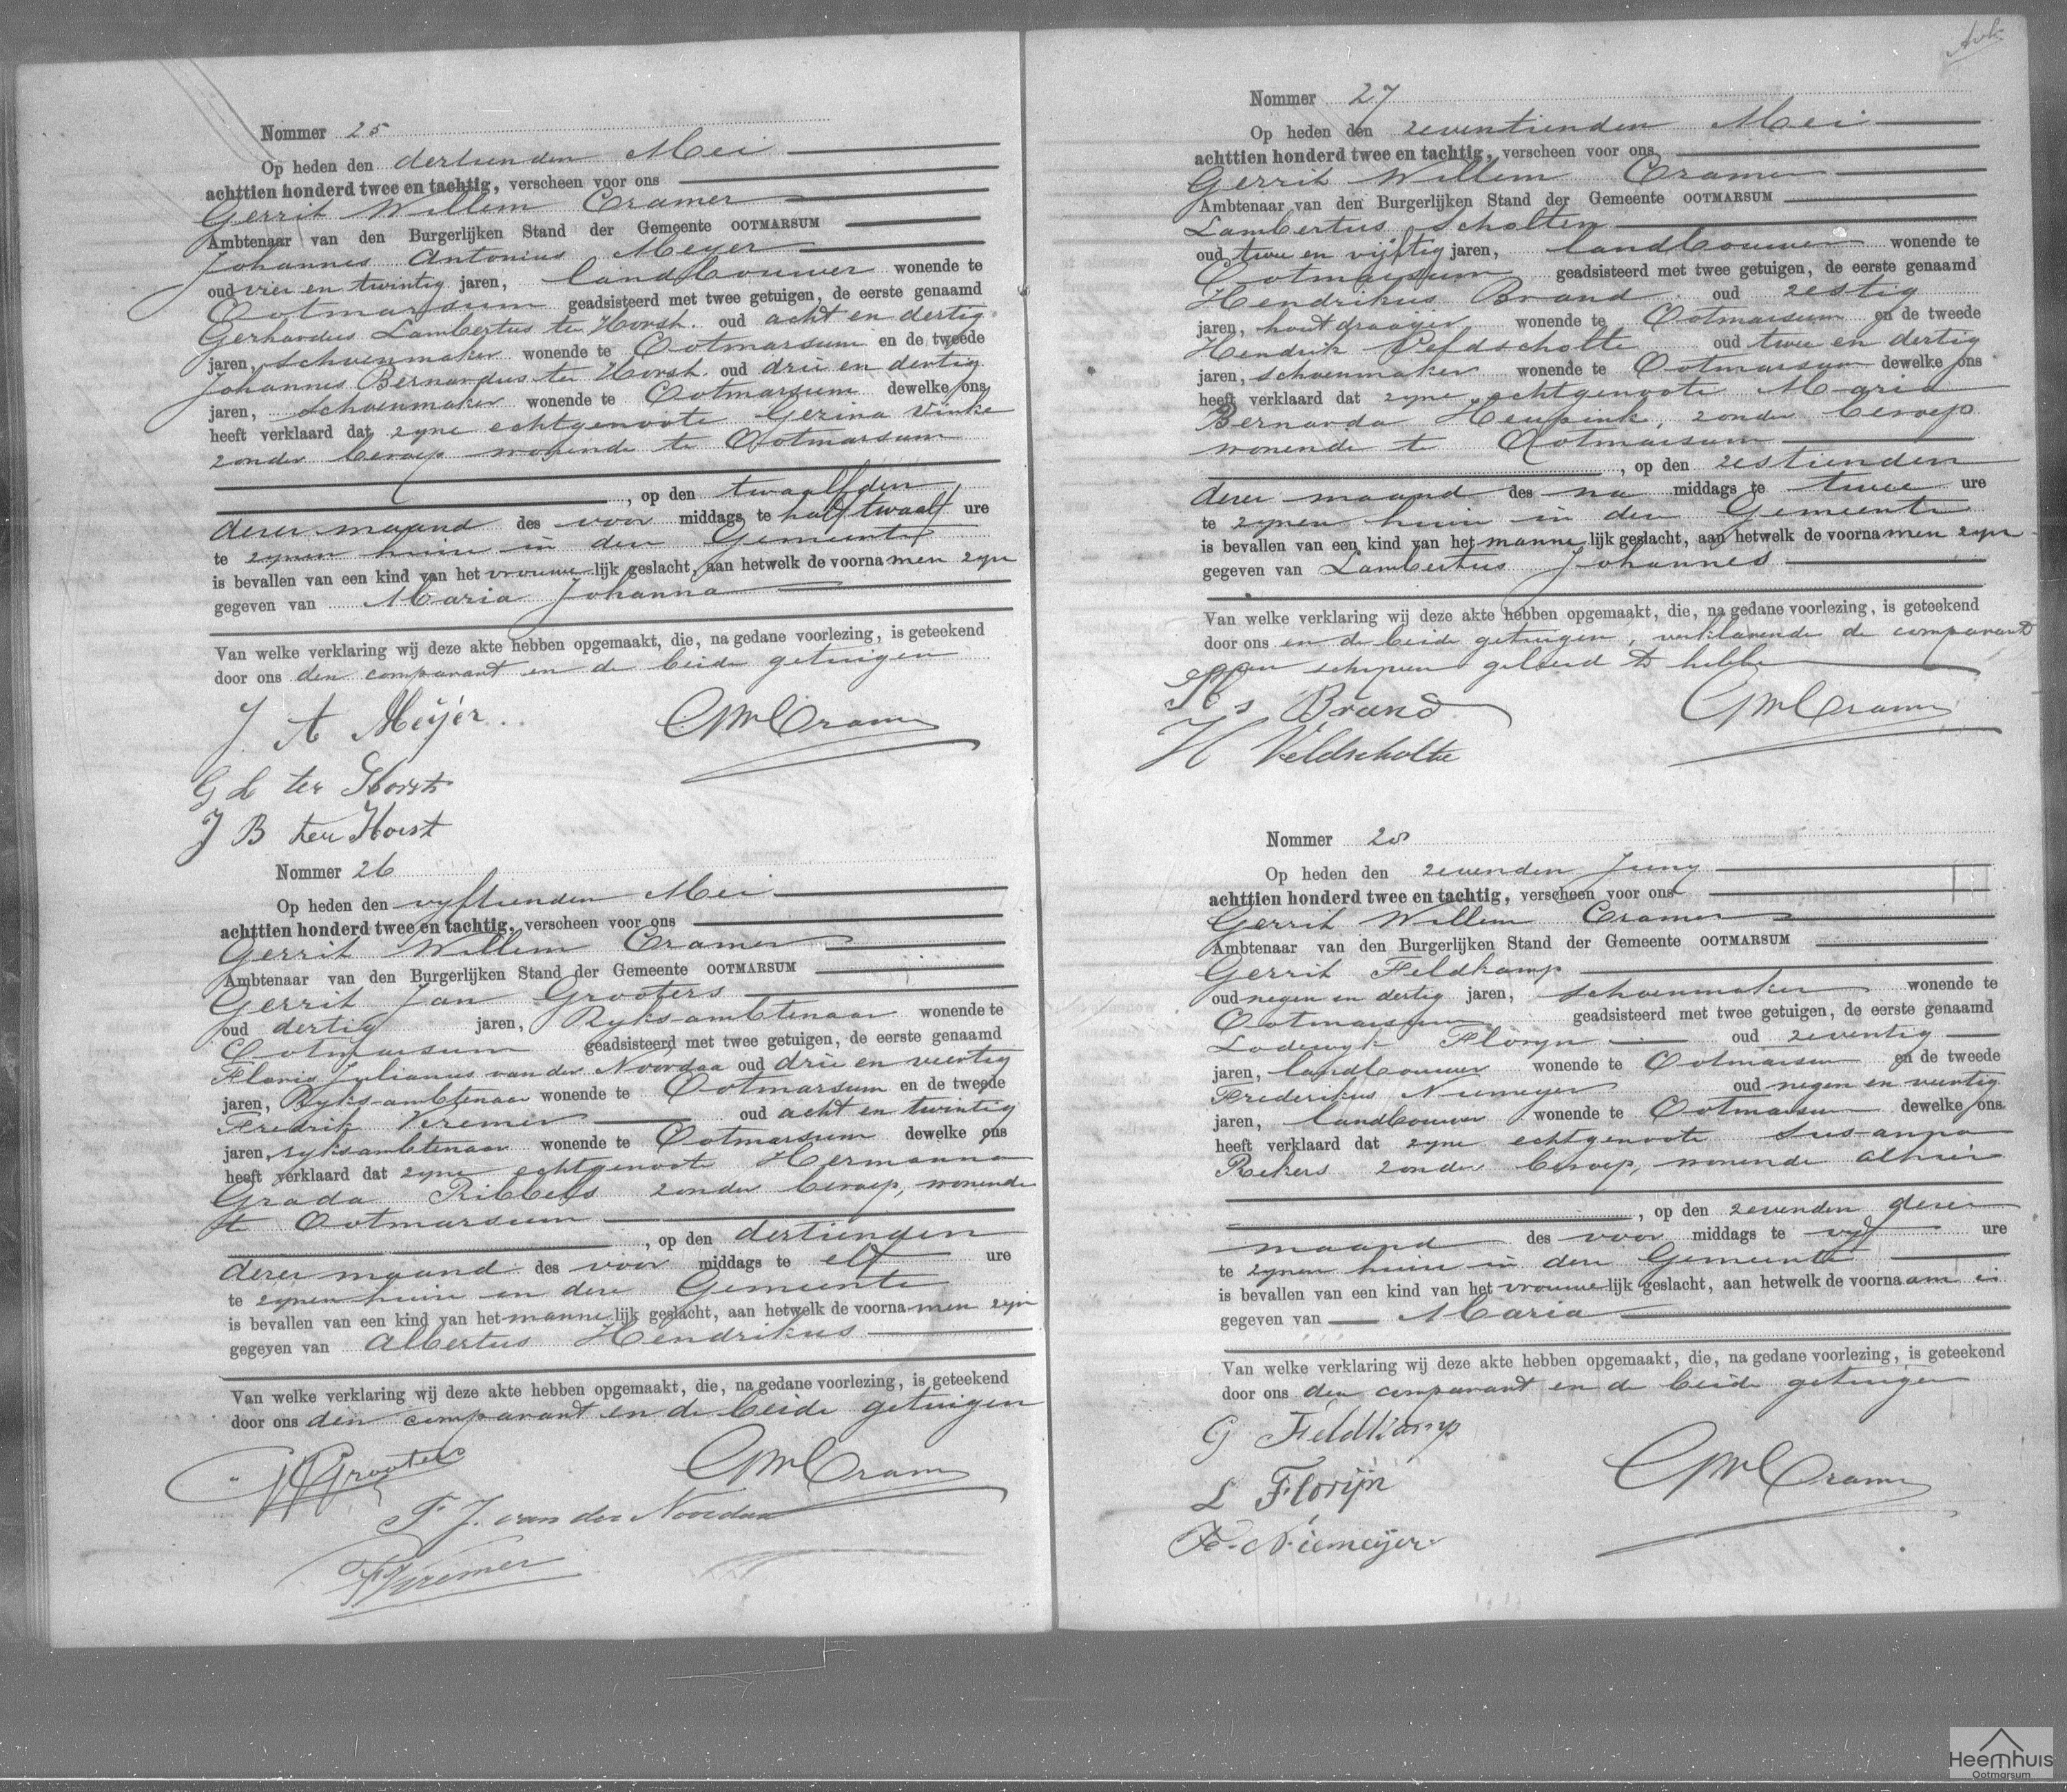 Nommer 25
Op heden den dertienden Mei
achttien honderd twee en tachtig, verscheen voor ons
Gerrit Willem Cramer
Ambtenaar van den Burgerlijken Stand der Gemeente OOTMARSUM
Johannes Antonius Meyer
oud vier en twintig jaren, landbouwer wonende te
Ootmarsum geadsisteerd met twee getuigen, de eerste genaamd
Gerhardus Lambertus ter Horst oud acht en dertig
jaren, schoenmaker wonende te Ootmarsum en de tweede
Johannes Bernardus ter Horst oud drie en dertig
jaren, schoenmaker wonende te Ootmarsum dewelke ons
heeft verklaard dat zyne echtgenoote Gezina Vinke
zonder beroep wonende te Ootmarsum
, op den twaalfden
dezer maand des voor middags te half twaalf ure
te zynen huize in deze Gemeente
is bevallen van een kind van het vrouwelijk geslacht, aan hetwelk de voornamen zyn
gegeven van Maria Johanna
Van welke verklaring wij deze akte hebben opgemaakt, die, na gedane voorlezing, is geteekend
door ons den comparant en de beide getuigen
J. A Meÿer GWCramer
G L ter Horst
J B ter Horst
Nommer 26
Op heden den vyftienden Mei
achttien honderd twee en tachtig, verscheen voor ons
Gerrit Willem Cramer
Ambtenaar van den Burgerlijken Stand der Gemeente OOTMARSUM
Gerrit Jan Grooters
oud dertig jaren, Ryksambtenaar wonende te
Ootmarsum geadsisteerd met twee getuigen, de eerste genaamd
Floris Julianus van der Noordaa oud drie en veertig
jaren, Ryksambtenaar wonende te Ootmarsum en de tweede
Fredrik Kremer oud acht en twintig
jaren, ryksambtenaar wonende te Ootmarsum dewelke ons
heeft verklaard dat zyne echtgenoote Hermanna
Grada Ribbels zonder beroep, wonende
te Ootmarsum
, op den dertienden
dezer maand des voor middags te elf ure
te zynen huize in deze Gemeente
is bevallen van een kind van het mannelijk geslacht, aan hetwelk de voornamen zyn
gegeven van Albertus Hendrikus
Van welke verklaring wij deze akte hebben opgemaakt, die, na gedane voorlezing, is geteekend
door ons den comparant en de beide getuigen
GJGrooters GWCramer
F. J. van der Noordaa
FKremer
Nommer 27
Op heden den zeventienden Mei
achttien honderd twee en tachtig, verscheen voor ons
Gerrit Willem Cramer
Ambtenaar van den Burgerlijken Stand der Gemeente OOTMARSUM
Lambertus Scholten
oud twee en vijftig jaren, landbouwer wonende te
Ootmarsum geadsisteerd met twee getuigen, de eerste genaamd
Hendrikus Brand oud zestig
jaren, houtdraaijer wonende te Ootmarsum en de tweede
Hendrik Veldscholte oud twee en dertig
jaren, schoenmaker wonende te Ootmarsum dewelke ons
heeft verklaard dat zyne echtgenoote Maria
Bernarda Heupink, zonder beroep
wonende te Ootmarsum
, op den zestienden
dezer maand des na middags te twee ure
te zynen huize in deze Gemeente
is bevallen van een kind van het mannelijk geslacht, aan hetwelk de voornamen zyn
gegeven van Lambertus Johannes
Van welke verklaring wij deze akte hebben opgemaakt, die, na gedane voorlezing, is geteekend
door ons en de beide getuigen, verklarende de comparant
geen schryven geleerd te hebben
Hs Brand GWCramer
H Veldscholte
Nommer 28
Op heden den zevenden Juny
achttien honderd twee en tachtig, verscheen voor ons
Gerrit Willem Cramer
Ambtenaar van den Burgerlijken Stand der Gemeente OOTMARSUM
Gerrit Feldkamp
oud negen en dertig jaren, schoenmaker wonende te
Ootmarsum geadsisteerd met twee getuigen, de eerste genaamd
Lodewyk Floryn oud zeventig
jaren, landbouwer wonende te Ootmarsum en de tweede
Frederikus Niemeyer oud negen en veertig
jaren, landbouwer wonende te Ootmarsum dewelke ons
heeft verklaard dat zyne echtgenoote Susanna
Rekers zonder beroep, wonende alhier
, op den zevenden dezer
maand des voor middags te vyf ure
te zynen huize in deze Gemeente
is bevallen van een kind van het vrouwelijk geslacht, aan hetwelk de voornaam is
gegeven van Maria
Van welke verklaring wij deze akte hebben opgemaakt, die, na gedane voorlezing, is geteekend
door ons den comparant en de beide getuigen
G Feldkamp
GWCramer
L Florÿn
Fr. Niemeÿer
Heemhuis
Ootmarsum